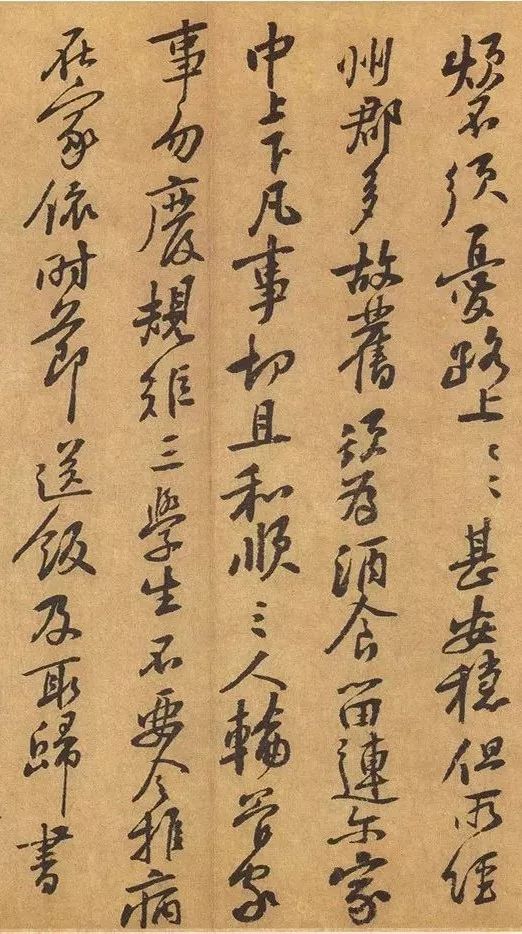 煩不須憂路上〻甚安穩但所經
州郡多故舊須為酒食留連尔家
中上下凡事切且和順三人輪管家
事勿廢規矩三學生不要令推病
在家依時節送飯及取歸書